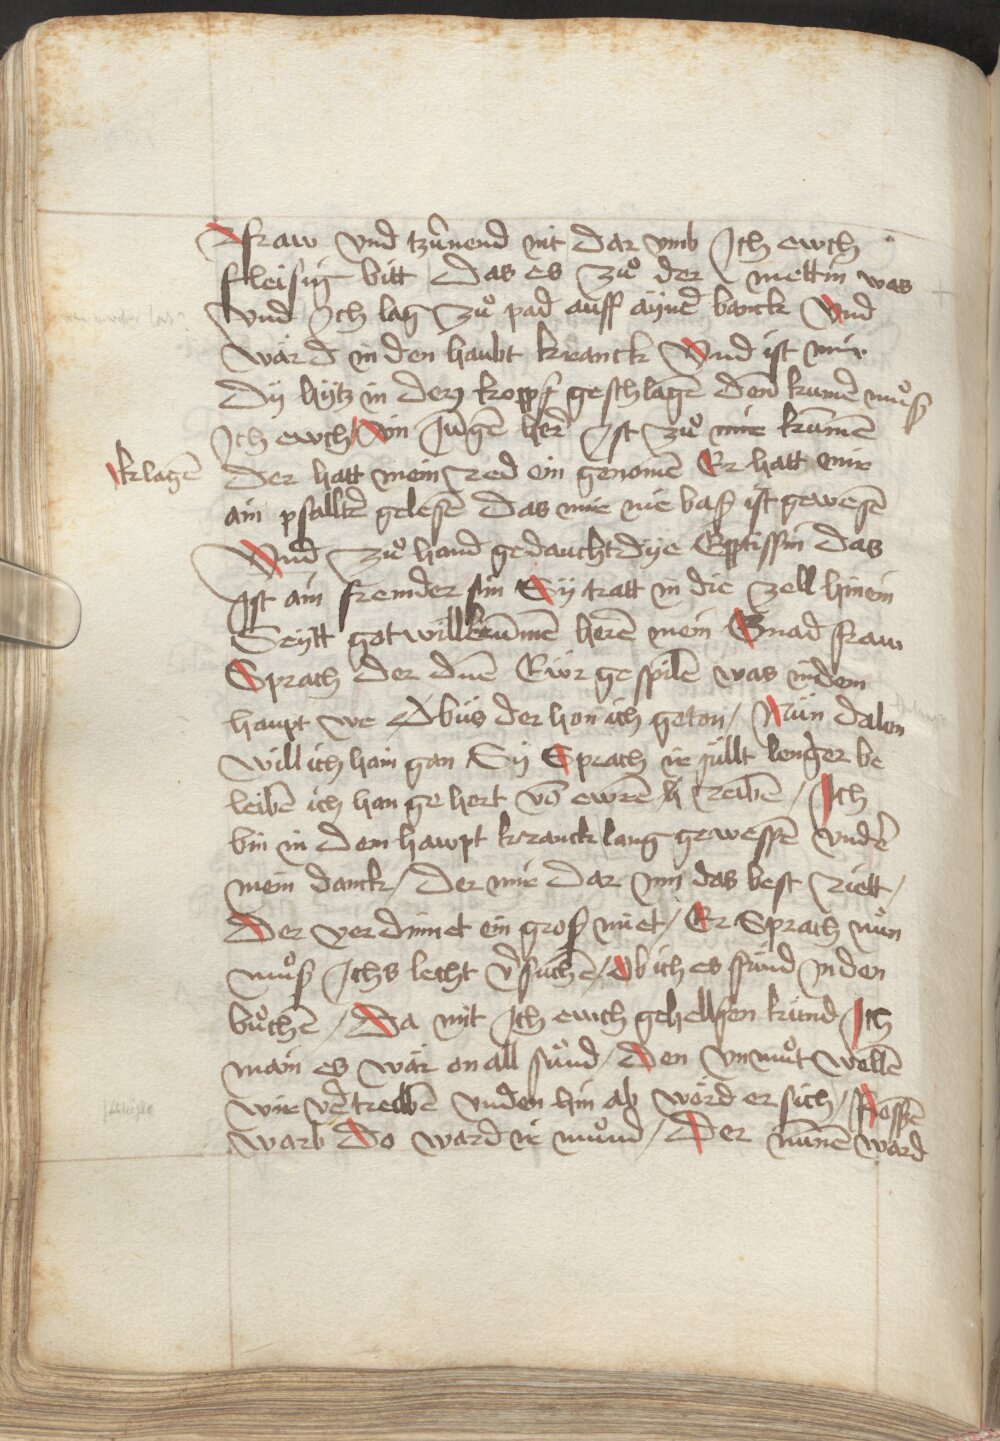 fraw vnd tzu̇nend nit dar vmb Jch ewch
fleisig bitt das es zuͦ der mettin was
vnd Jch lag zuͦ pad auff ayne͂ banck Vnd
ward in den haubt kranck Vnd ist mir
Dÿ hytz in den kopff geschlage͂ den kume͂ muͦß
Jch ewch Ain Junge͂ her ist zuͦ mir kume͂
klage͂
der hatt mein red ein genome͂ Er hatt mir
ain psallter gelese͂ das mir nie baß ist gewese͂
Vnd zuͦ hand gedaucht dye Epptissin das
Jst ain fremder sin Sÿ tratt in die zell hinein
Seytt got willkumme͂ here͂ mein Gnad fraw
Sprach der Ewr gespile͂ was in dem
haupt we Abüs der hon ich geton / Nün dalon
will ich hain gan Sÿ Sprach ir süllt lenger be
leibe͂ ich han gehort vo͂ ewre͂ treibe͂ / Jch
bin in dem hawpt kranck lang gewesse͂ vnd
mein danck / der mir dar Inn das best riett /
Der verdinnet ein groß miet / Er Sprach nuͦn
muͦß Jchs lecht v͂suche͂ / Ob ich es fünd in den
buͦche͂ / Da mit Jch ewch gehellfen künd Jch
main es wär on all sünd / Den vnmuͦt welle͂
wir v͂treibe͂ vnden hin ab word er sich /
warb Do ward ir muͦnd / Der nunne͂ ward